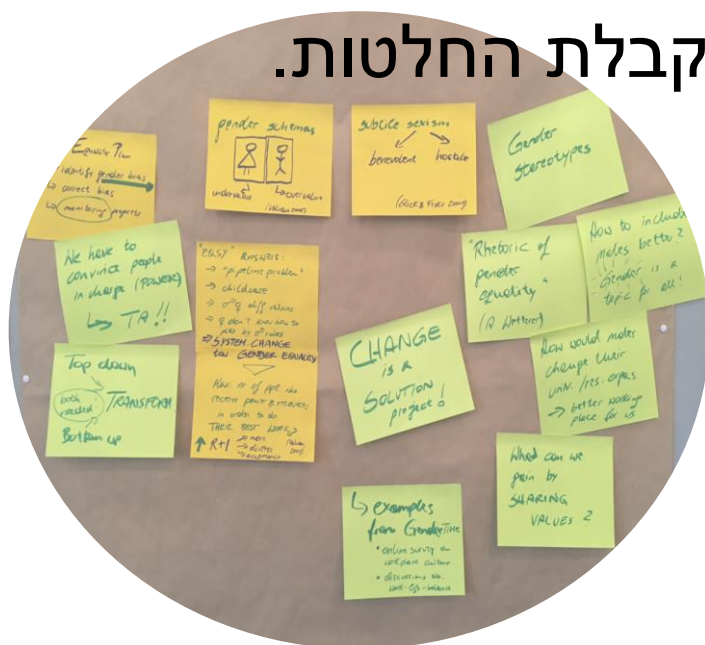 קבלת החלטות.
Equality Plan
identify gender bias
↳ correct bias
↳ monitoring progress
gender schemas
undervalue
overvalue
subtile sexism
benevolent hostile
Gender
Stereotypes
We have to
convince people
in charge (POWER)
↳ TA!!
"EASY" ANSWERS:
→ "pipeline problem"
→ childcare
→ ♂♀ diff values
→ ♀ don't know how to
play by ♂ rules
⇒ SYSTEM CHANGE
tow GENDER EQUALITY
receive power & resources
in order to do
THEIR BEST WORK?
↑ R+I
→ more
→ diverse
"Rhetoric of
gender
equality"
(A. Wetterer)
How to include
males better?
Gender is a
topic for all!
Top down
both
needed
TRANSFORM
Bottom up
CHANGE
is a
SOLUTION
project!
How would males
change their
univ./res. orgas
→ better working
place for us
What can we
gain by
SHARING
VALUES?
↳ examples
from GenderTIME
• online survey on
workplace culture
• discussions ab.
work-life-balance